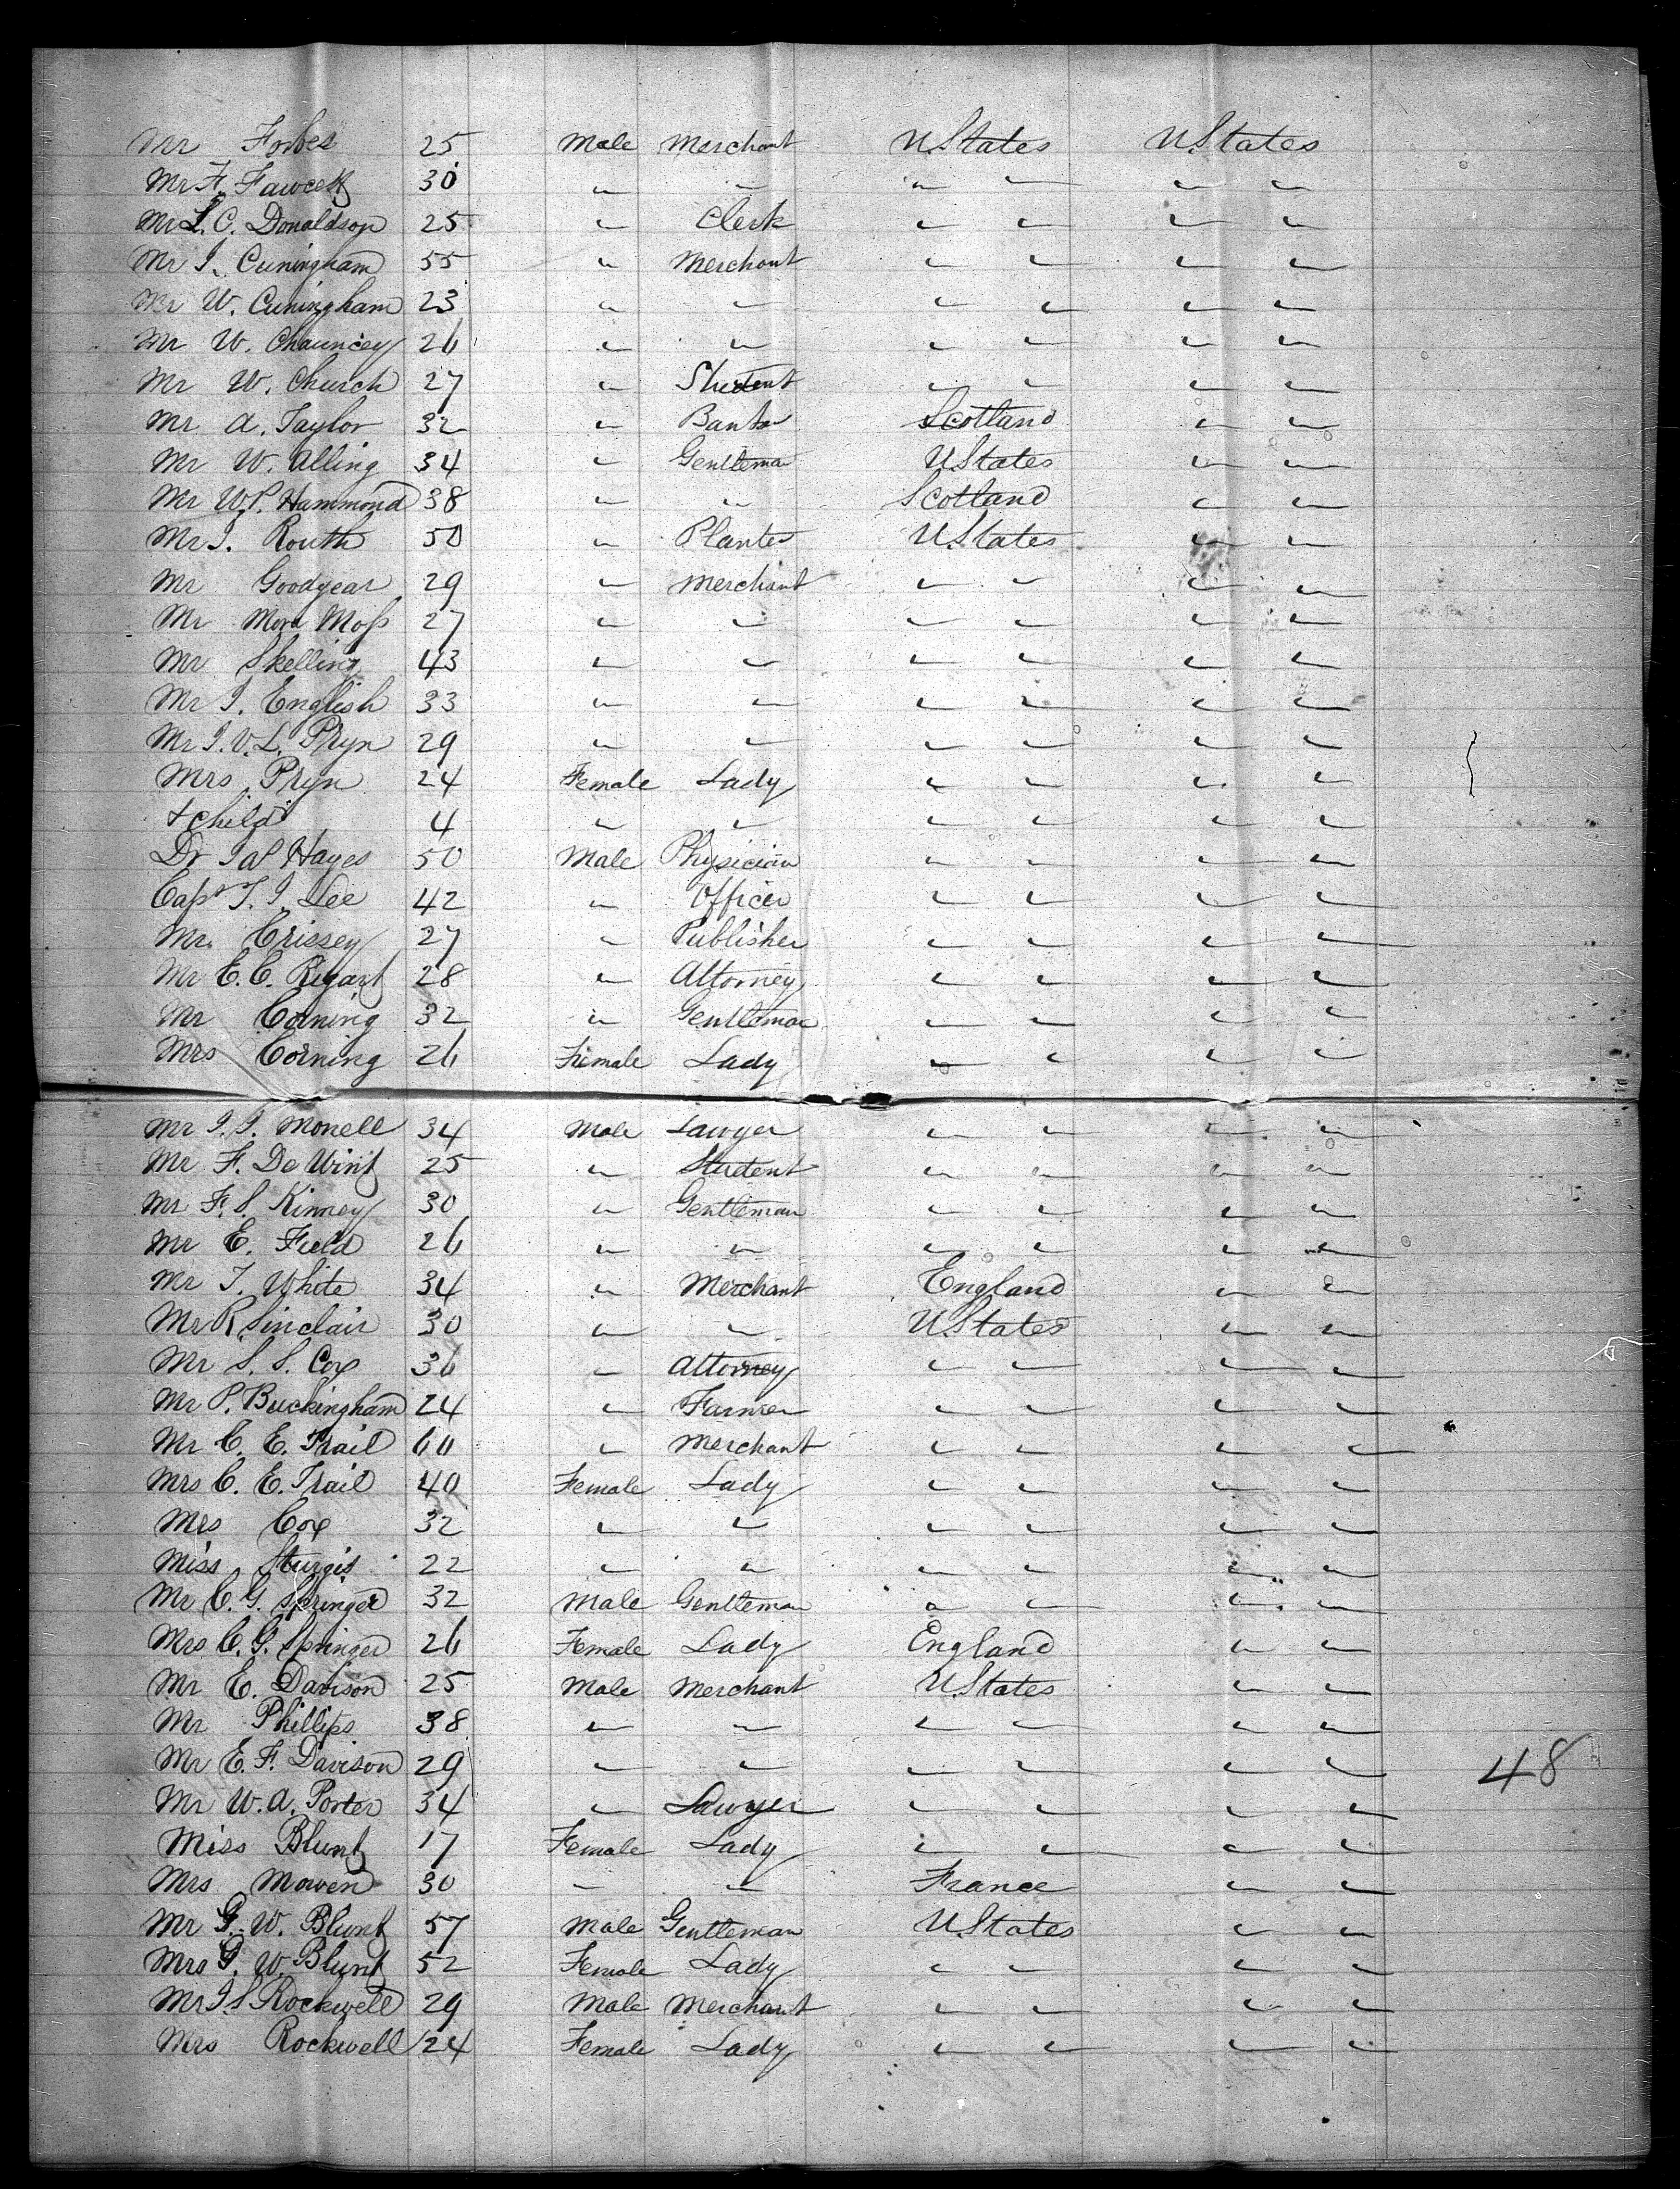 Mr Forbes 25 Male Merchant U.States U.States
Mr F. Fawcett 30 " " " " " "
Mr L. C. Donaldson 25 " Clerk " " " "
Mr J. Cuningham 55 " Merchant " " " "
Mr W. Cuningham 23 " " " " " "
Mr W. Chauncey 26 " " " " " "
Mr W. Church 27 " Student " " " "
Mr A. Taylor 32 " Scotland " "
Mr W. Alling 34 " Gentleman U.States " "
Mr W.P. Hammond 38 " " Scotland " "
Mr J. Routh 50 " Planter U.States " "
Mr Goodyear 29 " Merchant " " " "
Mr Moss 27 " " " " " "
Mr Skelling 43 " " " " " "
Mr J. English 33 " " " " " "
Mr J.V.L. Pryn 29 " " " " " "
Mrs Pryn 24 Female Lady " " " "
+ child 4 " " " " " "
Dr Hayes 50 Male Physician " " " "
Capt T. J. Lee 42 " Officer " " " "
Mr. Crissey 27 " Publisher " " " "
Mr E. C. 28 " Attorney " " " "
Mr Corning 32 " Gentleman " " " "
Mrs Corning 26 Female Lady " " " "
Mr J. J. Monell 34 Male Lawyer " " " "
Mr F. De Wint 25 " Student " " " "
Mr F. S. Kinney 30 " Gentleman " " " "
Mr E. Field 26 " " " " " "
Mr T. White 34 " Merchant England " "
Mr R. Sinclair 30 " " U.States " "
Mr S. S. Cox 36 " Attorney " " " "
Mr P. Buckingham 24 " Farmer " " " "
Mr C. E. Trail 60 " Merchant " " " "
Mrs C. E. Trail 40 Female Lady " " " "
Mrs Cox 32 " " " " " "
Miss Sturgis 22 " " " " " "
Mr C. G. Springer 32 Male Gentleman " " " "
Mrs C. G. Springer 26 Female Lady England " "
Mr E. Davison 25 Male Merchant U.States " "
Mr Phillips 38 " " " " " "
Mr E. F. Davison 29 " " " " " " 48
Mr W. A. Porter 34 " Lawyer " " " "
Miss Blunt 17 Female Lady " " " "
Mrs Mowen 30 " " France " "
Mr G. W. Blunt 57 Male Gentleman U.States " "
Mrs G. W. Blunt 52 Female Lady " " " "
Mr J. S Rockwell 29 Male Merchant " " " "
Mrs Rockwell 24 Female Lady " " " "